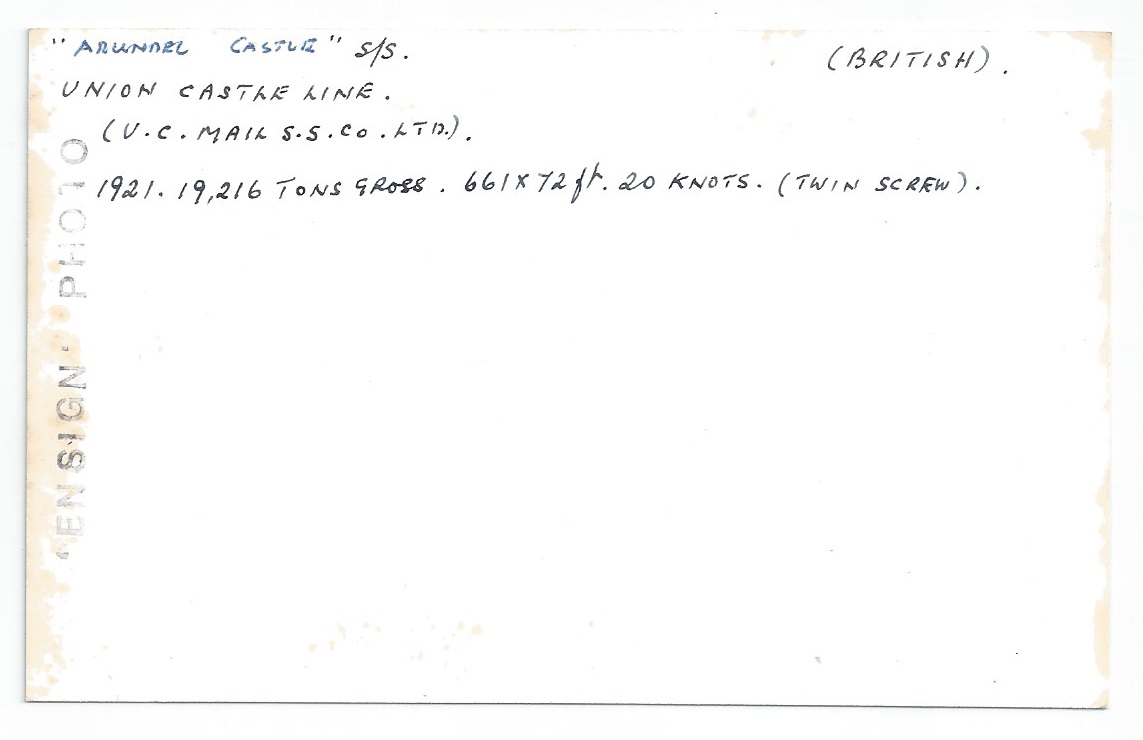 "ARUNDEL CASTLE" S/S. (BRITISH).
UNION CASTLE LINE.
(U.C. MAIL S.S. CO. LTD.).
1921. 19,216 TONS GROSS. 661 X 72 ft. 20 KNOTS. (TWIN SCREW).
"ENSIGN" PHOTO